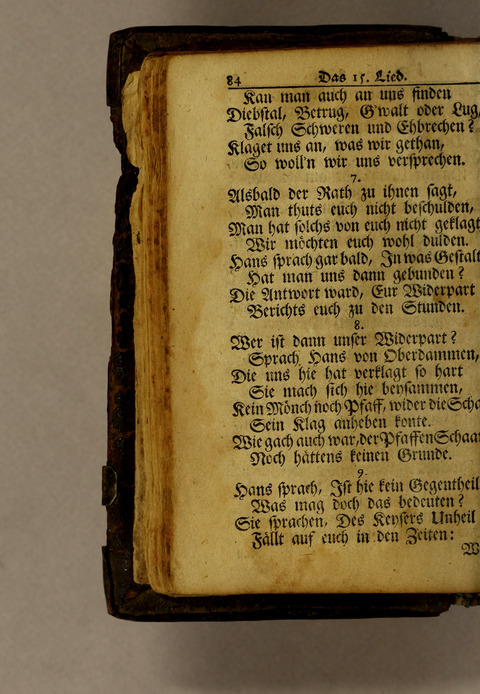 84 Das 15. Lied.
Kan man auch an uns finden
Diebstal, Betrug, G'walt oder Lug,
Falsch Schweren und Ehbrechen?
Klaget uns an, was wir gethan,
So woll'n wir uns versprechen.
7.
Alsbald der Rath zu ihnen sagt,
Man thuts euch nicht beschulden,
Man hat solchs von euch nicht geklagt
Wir möchten euch wohl dulden.
Hans sprach gar bald, In was Gestalt
Hat man uns dann gebunden?
Die Antwort ward, Eur Widerpart
Berichts euch zu den Stunden.
8.
Wer ist dann unser Widerpart?
Sprach Hans von Oberdammen,
Die uns hie hat verklagt so hart
Sie mach sich hie beysammen,
Kein Mönch noch Pfaff, wider die Scha
Sein Klag anheben konte.
Wie gach auch war, der Pfaffen Schaar
Noch hättens keinen Grunde.
9.
Hans sprach, Ist hie kein Gegentheil
Was mag doch das bedeuten?
Sie sprachen, Des Keysers Unheil
Fällt auf euch in den Zeiten:
W